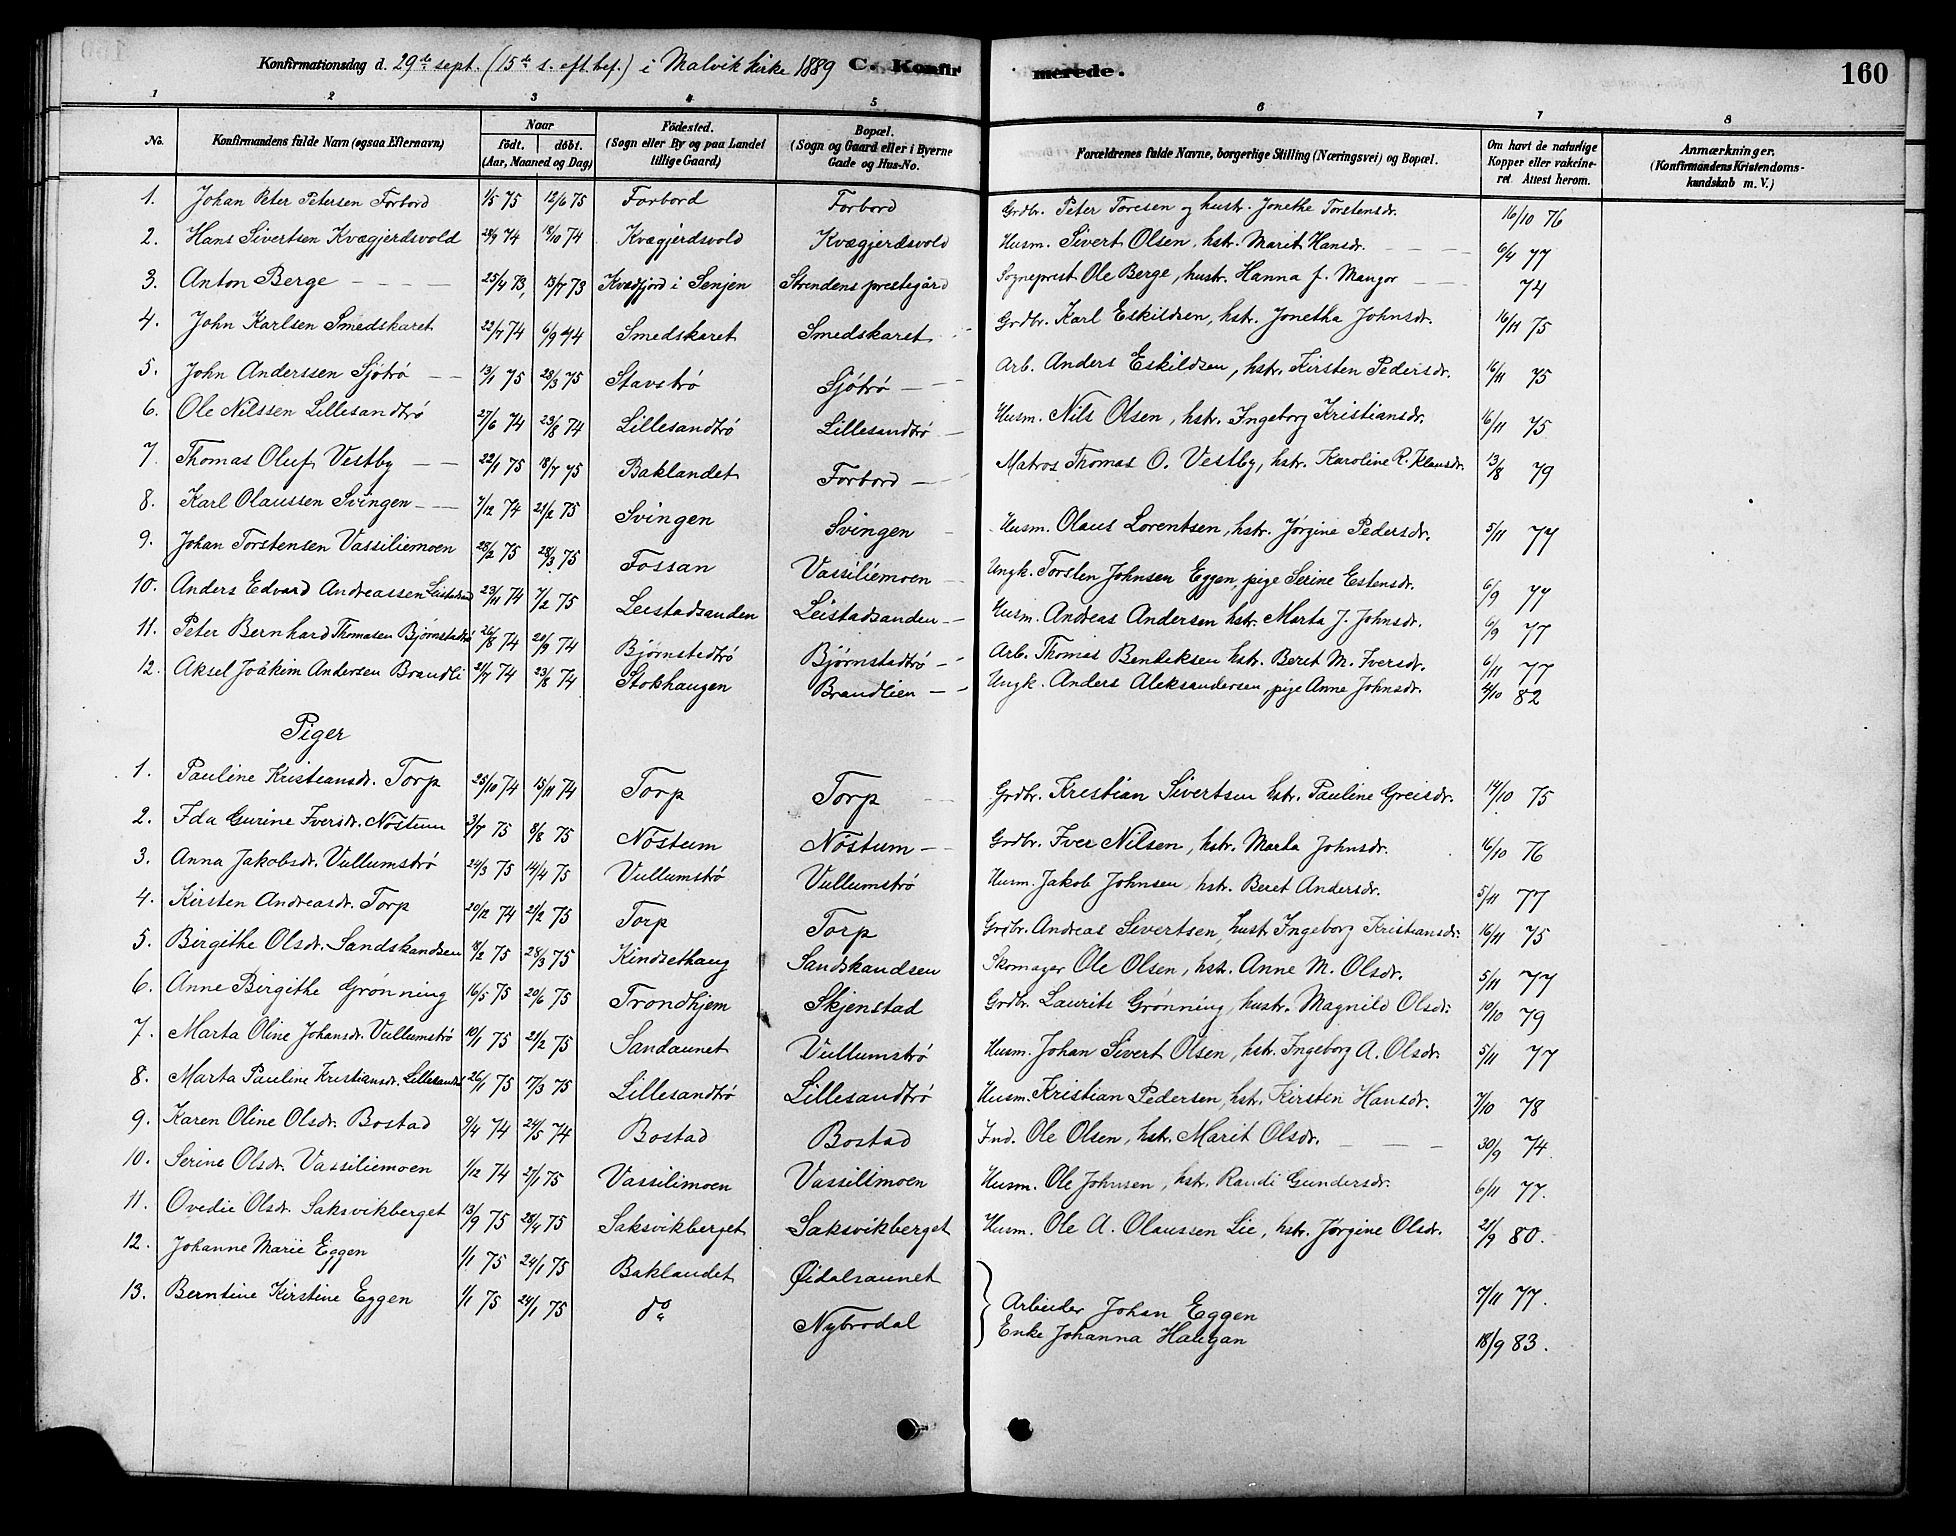 Konfirmationsdag d. 29de sept. (15de s. eft. tref.) i Malvik kirke 1889 C. Konfirmerede. 160
1 2 3 4 5 6 7 8
No. Konfirmandens fulde Navn (ogsaa Efternavn) Naar födt. döbt. (Aar, Maaned og Dag) Födested. (Sogn eller By og paa Landet tillige Gaard) Bopæl. (Sogn og Gaard eller i Byerne Gade og Hus-No. Forældrenes fulde Navne, borgerlige Stilling (Næringsvei) og Bopæl. Om havt de naturlige Kopper eller vakcineret Attest herom. Anmærkninger. (Konfirmandens Kristendomskundskab m. V.)
1. Johan Peter Petersen Forbord 1/5 75 12/6 75 Forbord Forbord Grdbr. Peter Toresen og hustr. Jonethe Torstensdr. 16/10 76
2. Hans Sivertsen Kvægjerdsvold 28/9 74 18/10 74 Kvægjerdsvold Kvægjerdsvold Husm. Sivert Olsen, hstr. Marit Hansdr. 6/9 77
3. Anton Berge 25/4 73, 13/7 73 Kvædfjord i Senjen Strindens prestegård Sogneprest Ole Berge, hustr. Hanna f. Mangor 74
4. John Karlsen Smedskaret 22/7 74 6/9 74 Smedskaret Smedskaret Grdbr. Karl Eskildsen, hstr. Jonetha Johnsdr. 16/11 75
5. John Anderssen Sjötrö 13/1 75 28/3 75 Stavströ Sjötrö Arb. Anders Eskildsen, hstr. Kirsten Pedersdr. 16/11 75
6. Ole Nilssen Lillesandtrö 27/6 74 23/8 74 Lillesandtrö Lillesandtrö Husm. Nils Olsen, hstr. Ingeborg Kristiansdr. 16/11 75
7. Thomas Oluf Vestby 22/1 75 18/7 75 Baklandet Forbord Matros Thomas O. Vestby, hstr. Karoline R. Klausdr. 13/8 79
8. Karl Olaussen Svingen 7/12 74 21/2 75 Svingen Svingen Husm. Olaus Lorentsen, hstr. Jørgine Pedersdr. 5/11 77
9. Johan Torstensen Vassiliemoen 28/2 75 28/3 75 Fossan Vassiliemoen Ungk. Torsten Johnsen Eggen, pige Serine Estensdr. 6/9 77
10. Anders Edvard Andreassen Leistadsand 23/11 74 7/2 75 Leistadsanden Leistadsanden Husm. Andreas Andersen hstr. Marta J. Johnsdr. 6/9 77
11. Peter Bernhard Thomasen Bjørnstadtrö 26/8 74 20/9 74 Bjørnstedtrö Bjørnstadtrö Arb. Thomas Bendiksen hstr. Beret M. Iversdr. 6/11 77
12. Aksel Joakim Andersen Brandli 21/7 74 23/8 74 Stokhaugen Brandlien Ungk. Anders Aleksandersen, pige Anne Johnsdr. 4/10 82
Piger
1. Pauline Kristiansdr. Torp 25/10 74 15/11 74 Torp Torp Grdbr. Kristian Sivertsen hstr. Pauline Greisdr. 14/10 75
2. Ida Gurine Iversdr. Nöstum 3/7 75 8/8 75 Nöstum Nöstum Grdbr. Iver Nilsen, hstr. Marta Johnsdr. 16/10 76
3. Anna Jakobsdr. Vullumströ 24/3 75 14/4 75 Vullumströ Vullumströ Husm. Jakob Johnsen, hstr. Beret Andersdr. 5/11 77
4. Kirsten Andreasdr. Torp 20/12 74 21/2 75 Torp Torp Grdbr. Andreas Sivertsen, hust. Ingeborg Kristiansdr. 16/11 75
5. Birgithe Olsdr. Sandskandsen 18/2 75 28/3 75 Kindsethaug Sandskandsen Skomager Ole Olsen, hst. Anne M. Olsdr. 5/11 77
6. Anne Birgithe Grönning 16/5 75 20/6 75 Trondhjem Skjenstad Grdbr. Laurits Grønning, hustr. Magnild Olsdr. 10/10 79
7. Marta Oline Johansdr. Vullumströ 10/1 75 21/2 75 Sandaunet Vullumströ Husm. Johan Sivert Olsen, hstr. Ingeborg A. Olsdr. 5/11 77
8. Marta Pauline Kristiansdr. Lillesandtrö 26/1 75 7/3 75 Lillesandtrö Lillesandtrö Husm. Kristian Pedersen, hstr. Kirsten Hansdr. 7/10 78
9. Karen Oline Olsdr. Bostad 9/4 74 24/5 74 Bostad Bostad Ind. Ole Olsen, hstr. Marit Olsdr. 30/9 74.
10. Serine Olsdr. Vassiliemoen 1/12 74 27/1 75 Vassilimoen Vassilimoen Husm. Ole Johnsen, hstr. Randi Gundersdr. 6/11 77.
11. Ovedie Olsdr. Saksvikberget 13/9 75 28/4 75 Saksvikberget Saksvikberget Husm. Ole A. Olaussen Lie, hstr. Jørgine Olsdr. 21/9 80.
12. Johanne Marie Eggen 1/1 75 24/1 75 Baklandet Øidalsaunet Arbeider Johan Eggen 7/11 77.
13. Berntine Kirstine Eggen 1/1 75 24/1 75 do Nybrodal Enke Johanna Haugan 18/9 83.